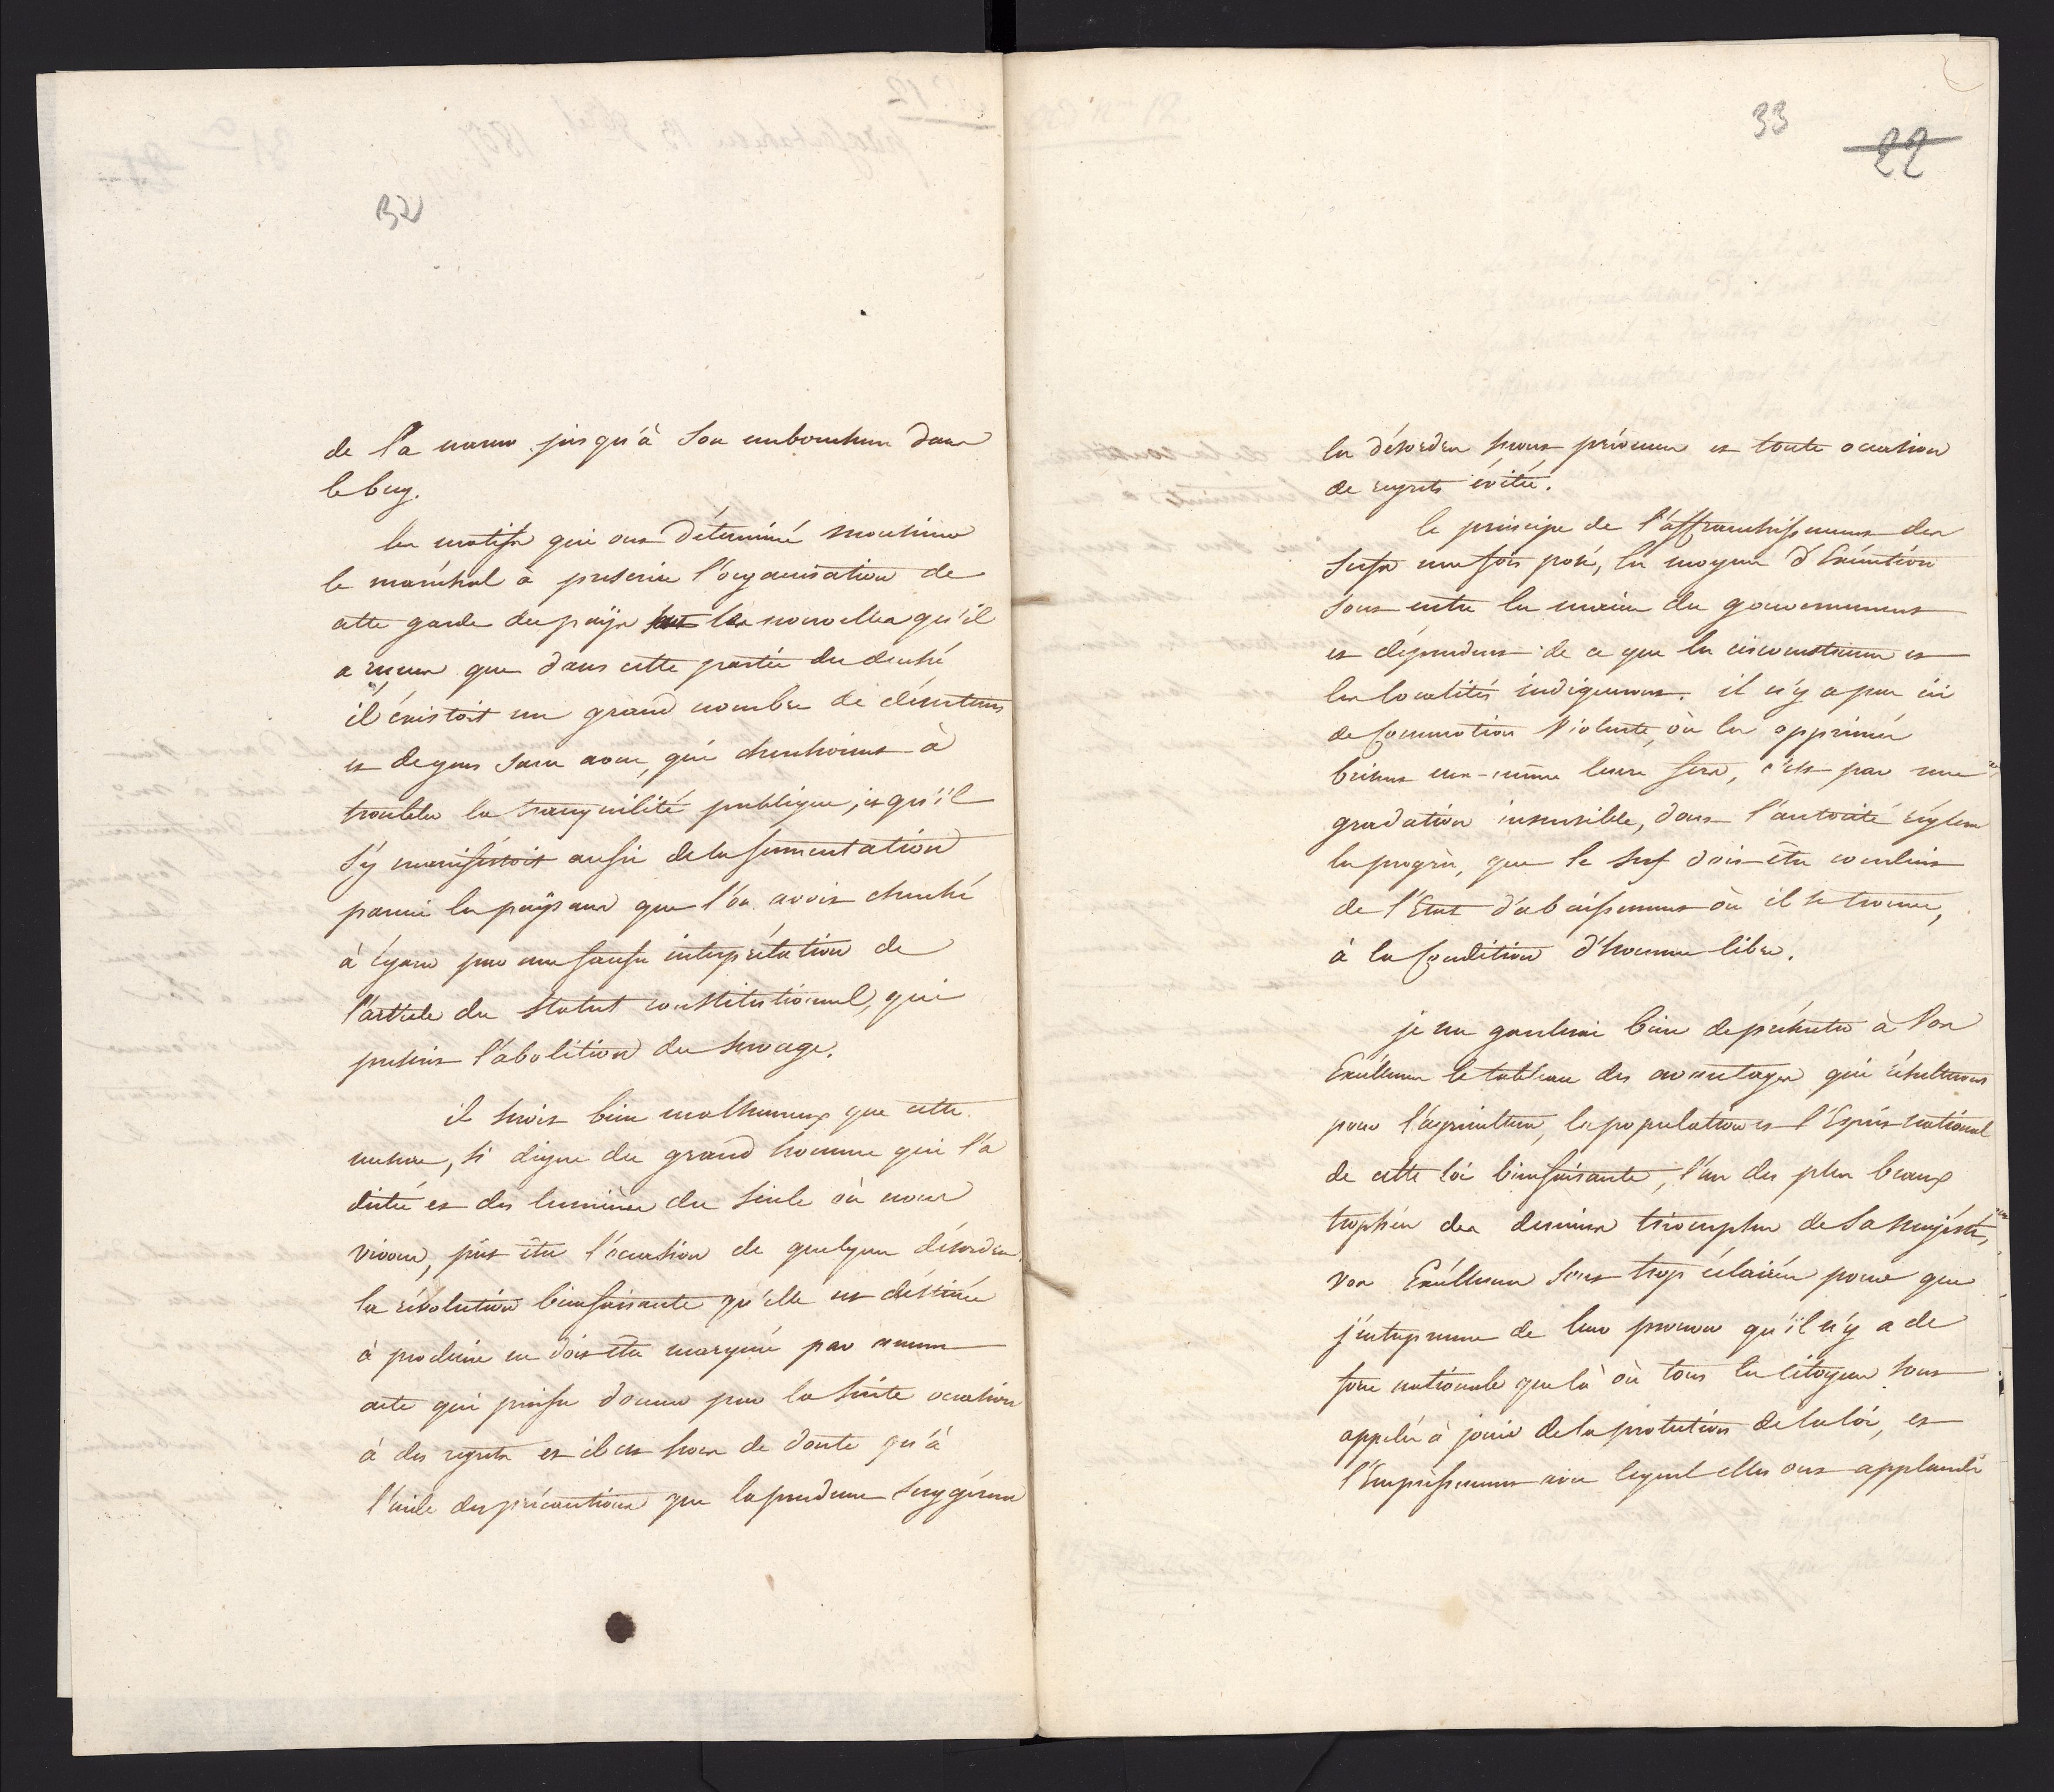 32
de la narew jusqu'à son embouchure dans
le bug.
les motifs qui ont déterminé monsieur
le maréchal à prescrire l'organisation de
cette garde du pays sont les nouvelles qu'il
a reçues que dans cette partie du duché
il éxistoit un grand nombre de déserteurs
et de gens sans aveu, qui cherchoient à
troubler la tranquilité publique, et qu'il
s'y manifestoit aussi de la fermentation
parmi les paÿsans que l'on avoit cherché
à égarer par une fausse interprétation de
l'article du statut constitutionnel, qui
prescrit l'abolition du servage.
il seroit bien malheureux que cette
mesure, si digne du grand homme qui l'a
dictée et des lumières du siècle où nous
vivons, pût être l'occasion de quelques désordres.
la révolution bienfaisante qu'elle est déstinée
à produire ne doit être marquée par aucun
acte qui puisse donner par la suite occasion
à des regrets et il est hors de doute qu'à
l'aide des précautions que la prudence suggérera
33
22
les désordres seront prévenus et toute occasion
de regrets évitée.
le principe de l'affranchissement des
serfs une fois posé, les moyens d'Exécution
sont entre les mains du gouvernement
et dépendent de ce que les circonstances et
les localités indiqueront. il n'y a pas ici
de Commotion Violente, où les opprimés
brisent eux-mêmes leurs fers, c'est par une
gradation insensible, dont l'autorité réglera
les progrès, que le serf doit être conduit
de l'Etat d'abaissement où il se trouve,
à la Condition d'homme libre.
je me garderai bien de présenter à Vos
Excéllences le tableau des avantages qui résulteront
pour l'agriculture, la population et l'Esprit national
de cette loi bienfaisante, l'un des plus beaux
trophées des derniers triomphes de Sa Majesté,
vos Excéllences sont trop éclairées pour que
j'entreprenne de leur prouver qu'il n'y a de
force nationale que là où tous les citoyens sont
appelés à jouir de la protection de la loi, et
l'Empressement avec lequel elles ont applaudi